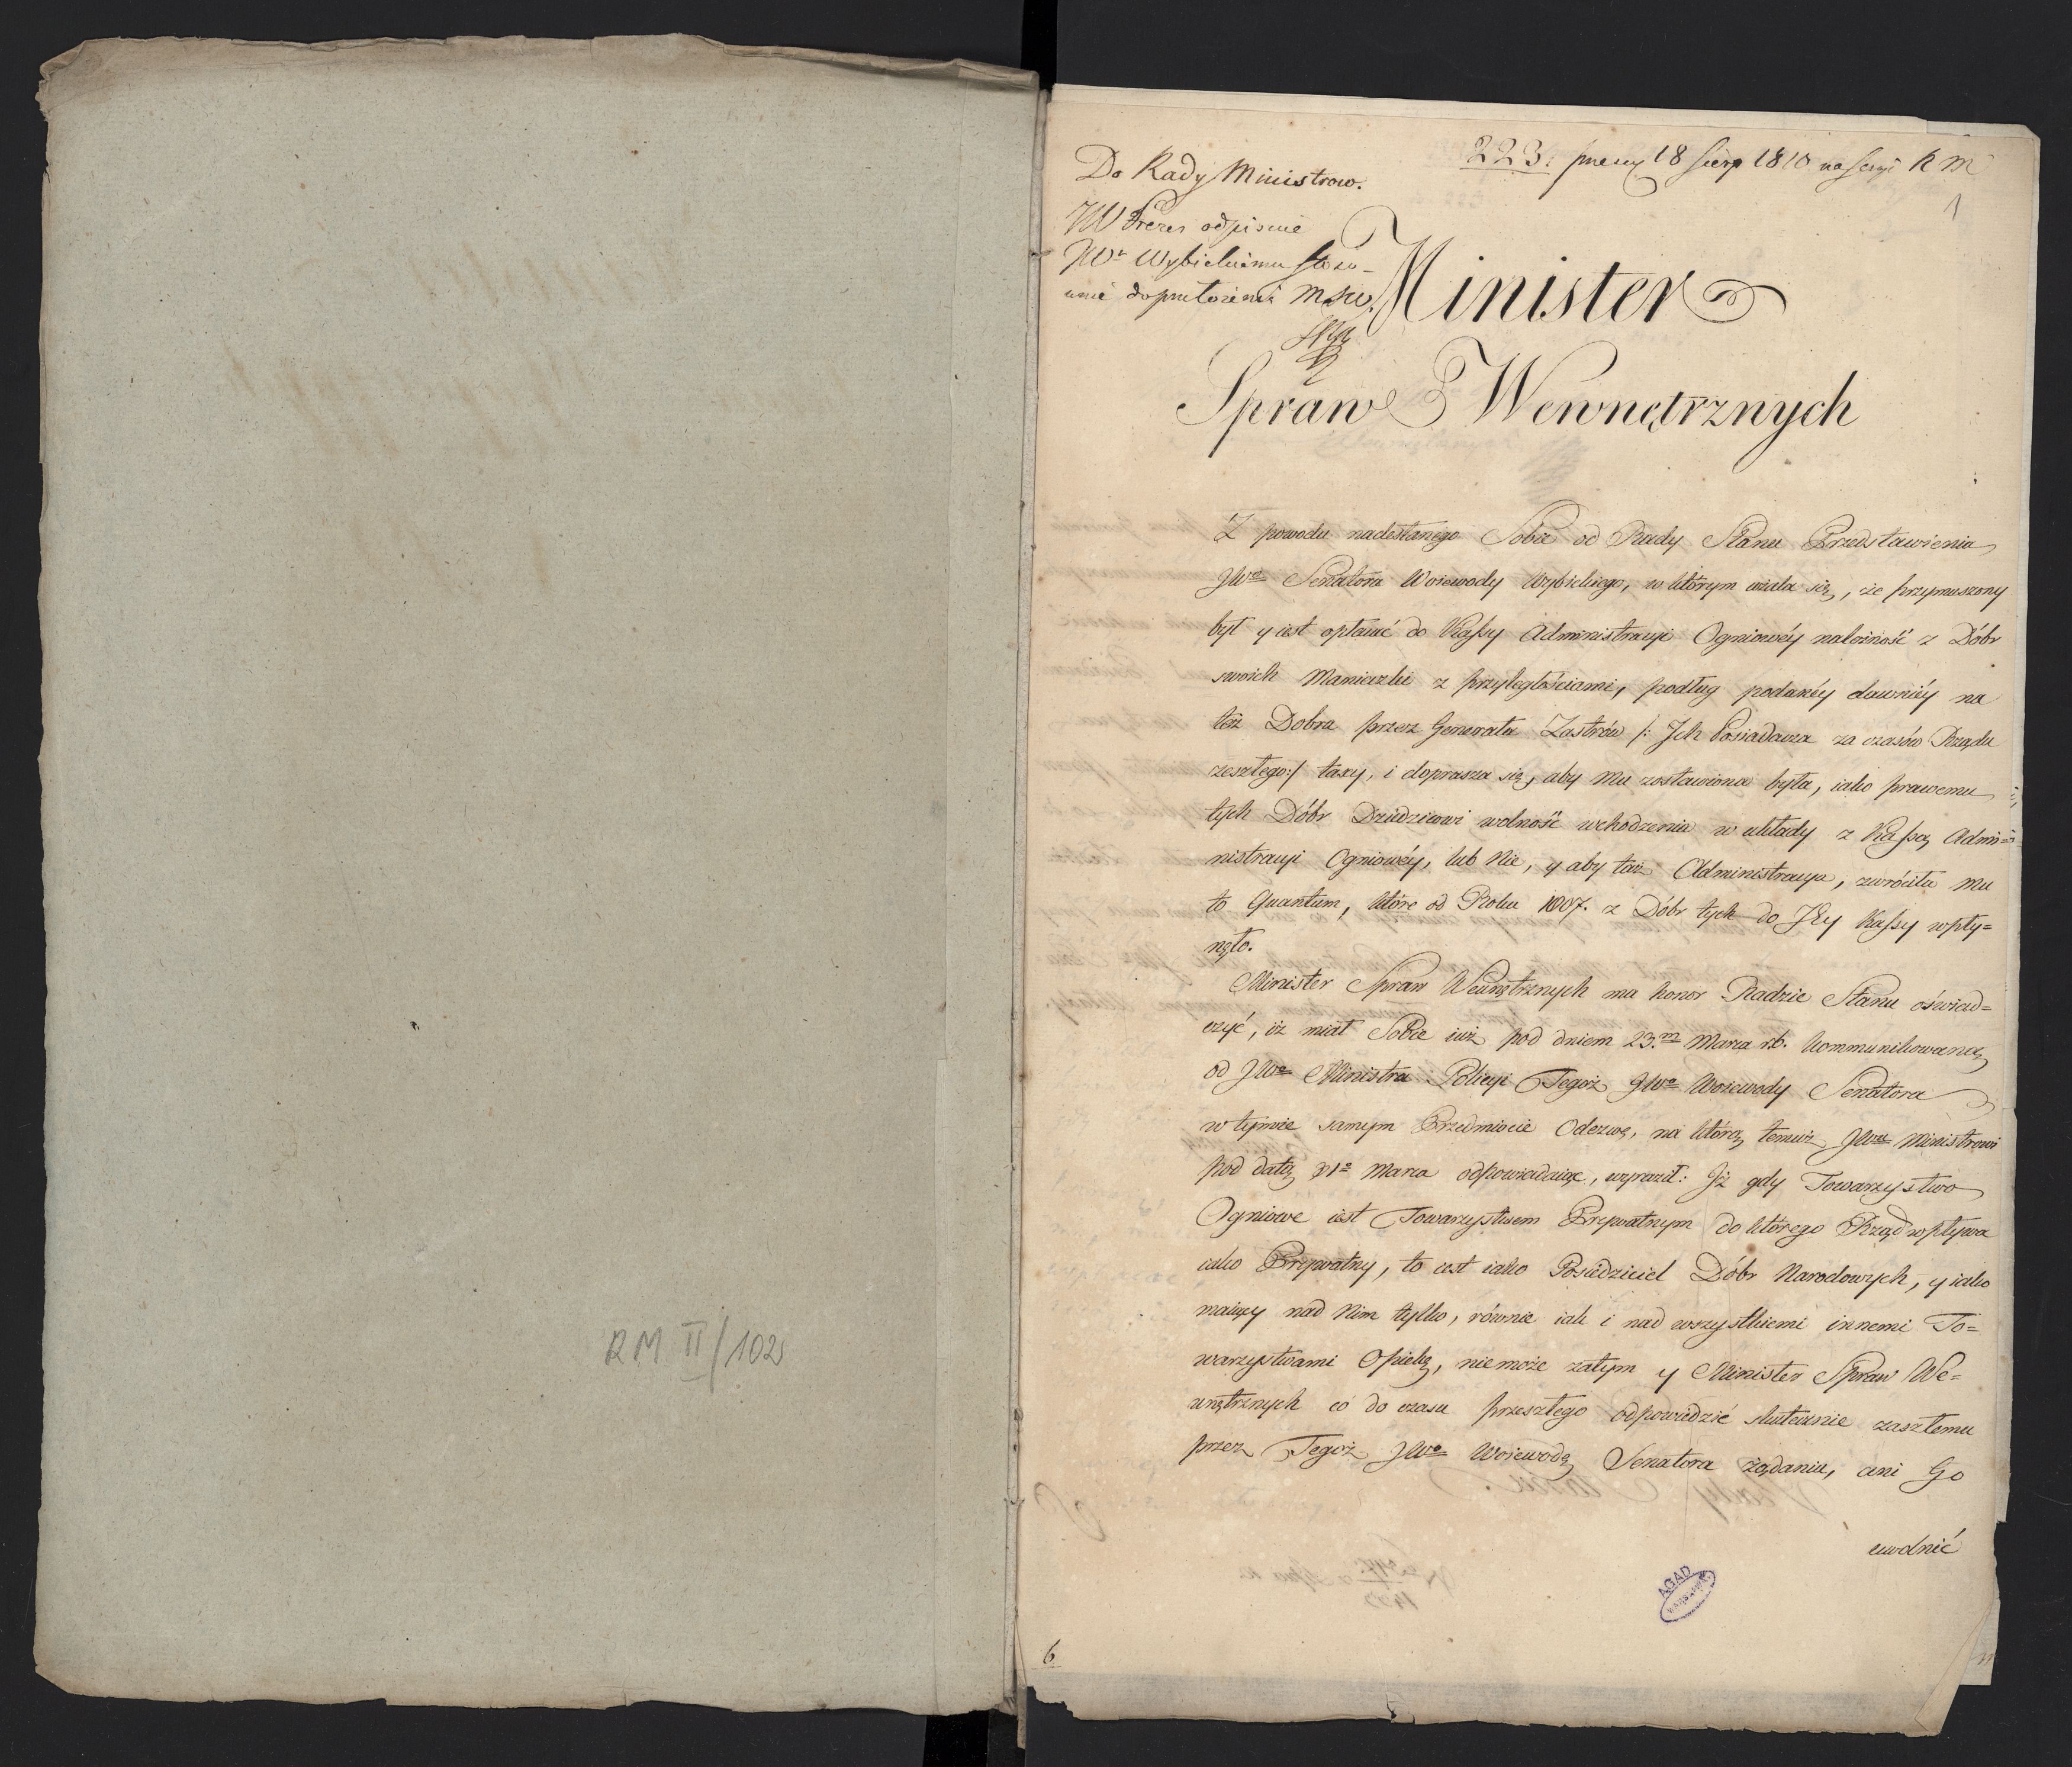 RM II/102
223. 18 sierp 1810 na sessyi R M
1
Do Rady Ministrow.
JW Prezes odpisze
JWu Wybickiemu stoso-
wnie do przełożenia MSW.
Minister
Spraw Wewnętrznych
Z powodu nadesłanego Sobie od Rady Stanu Przedstawienia
JWo Senatora Woiewody Wybickiego, w którym użala się, że przymuszony
był y iest opłacać do Kassy Administracyi Ogniowéy należność z Dóbr
swoich Manieczki z przyległościami, podług podanéy dawniéy na
też Dobra przez Generała Zastrów /: Jch Posiadacza za czasów Rządu
zeszłego:/ taxy, i doprasza się, aby mu zostawiona była, iako prawemu
tych Dóbr Dziedzicowi wolność wchodzenia w układy z Kassą Admi=
nistracyi Ogniowéy, lub Nie, y aby taż Administracya, zwróciła mu
to Quantum, które od Roku 1807. z Dóbr tych do JEy Kassy wpły=
nęło.
Minister Spraw Wewnętrznych ma honor Radzie Stanu oświad=
czyć, iż miał Sobie iuż pod dniem 23.m Marca r.b. kommunikowaną
od JWo Ministra Policyi Tegoż JWo Woiewody Senatora
w tymże samym Przedmiocie Odezwę, na którą temuż JWu Ministrowi
pod datą 31o Marca odpowiadaiąc, wyraził: Jż gdy Towarzystwo
Ogniowe iest Towarzystwem Prywatnym do którego Rząd wpływa
iako Prywatny, to iest iako Posiedziciel Dóbr Narodowych, y iako
maiący nad Nim tylko, równie iak i nad wszystkiemi innemi To=
warzystwami Opiekę, nie może zatym y Minister Spraw We=
wnętrznych co do czasu przeszłego odpowiedzić skutecznie zaszłemu
przez Tegoż JWo Woiewodę Senatora żądaniu, ani Go
uwolnić
AGAD
WARSZAWA
6